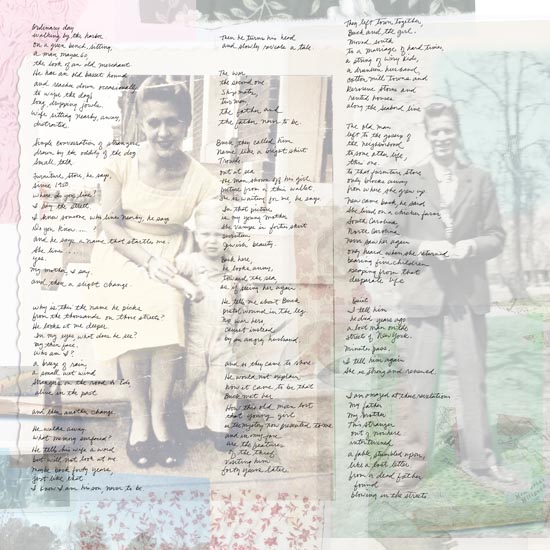 Ordinary day
walking by the harbor
on a green bench, sitting,
a man maybe 60,
the look of an old merchant
He has an old basset hound
and reaches down occasionally
to wipe the dog's
long dripping jowls.
Wife sitting nearby, away,
distracted.
Simple conversation of strangers
drawn by the oddity of the dog
Small talk.
Furniture store, he says,
since 1950.
where do you live?
I say the street
I knew someone who lived nearby, he says
Do you know....
and he says a name that startles me.
She lives ....
yes.
My mother, I say.
and then a slight change.
why is this the name he picks
from the thousands on those streets?
He looks at me deeper.
In my eyes what does he see?
My thin face.
Who am I?
a breeze of rain,
a small wet wind
Strangers on the road to
alive in the past
and then another change
He walks away
What moving surfaced?
He tells his wife a word
but will not look at me
maybe back forty years,
just like that
I know I am his son, never to be.
Then he turns his head
and slowly reveals a tale.
The war
the second one
Ship mates,
two men
the father and
the father never to be.
Buck they called him
Name like a bright shirt
Trouble
out at sea
The man shows off his girl
picture from a thin wallet.
She is waiting for me, he says.
In that picture
is my young mother
She vamps in forties skirt
sensation
Jewish beauty.
Back here,
he looks away,
toward the sea
as if seeing her again
He tells me about Buck
pistol wound in the leg
No war hero
Caught instead
by an angry husband
and as they came to shore.
He would not explain
how it came to be that
Buck met her
How this old man lost
that young girl
is the mystery now presented to me
and in my eyes
are the pictures
of the thief
visiting him
forty years later.
They left town together,
Buck and the girl.
Moved south
to a marriage of hard times,
a string of wiry kids,
a drunken husband
cotton mill towns and
Kerosene stoves and
rented houses
along the seaboard line
The old man
left to the gossip of
the neighborhood
to some other life,
then one
to that furniture store
only blocks away
from where she grew up
News came back, he said
She lived on a chicken farm,
South Carolina
North Carolina
never saw her again
only heard when she returned
bearing five children
escaping from that
desperate life
Dead
I tell him
he died years ago
a lost man on the
streets of New York.
minutes pass.
I tell him again
She is strong and renewed.
I am amazed at these revelations
My father
my mother
This stranger
out of nowhere
intertwined
a fable stumbled upon
like a lost letter
from a dead father
found
blowing in the streets.